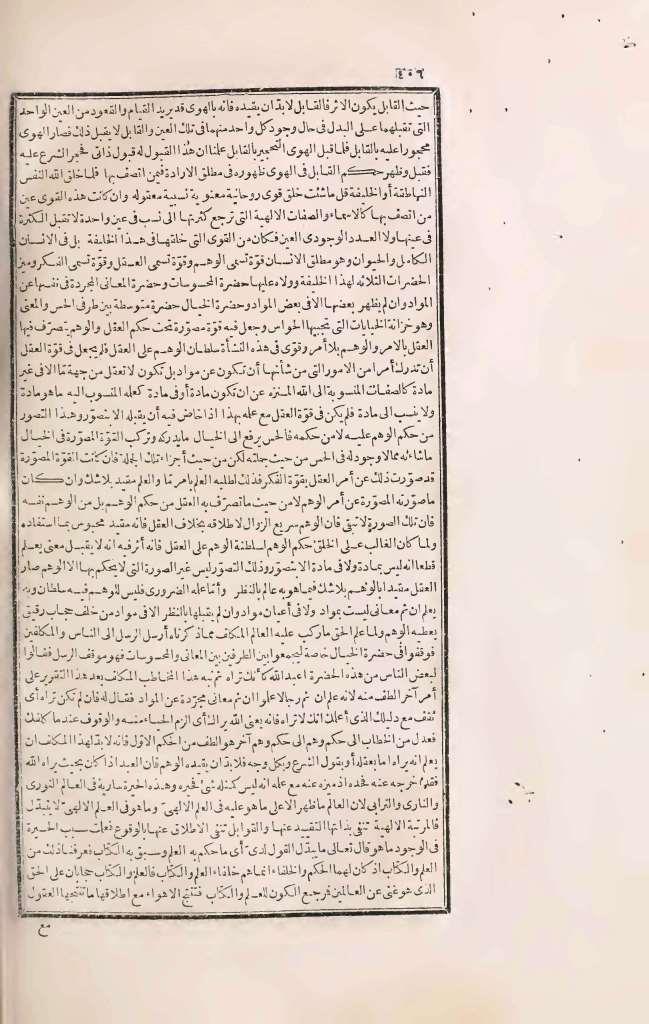 ٤٠٦
حيث القابل يكون الاثر فالقابل لابد ان يقيده فانه بالهوى قد يريد القيام والقعود من العين الواحد
التي تقبلهما على البدل في حال وجود كل واحد منهما في تلك العين والقابل لا يقبل ذلك فصار الهوى
محجورا عليه بالقابل فلما قبل الهوى التحجير بالقابل علمنا ان هذا القبول له قبول ذاتي فحجر الشرع عليه
فقبل وظهر حكم القابل في الهوى ظهوره في مطلق الارادة فيمن اتصف بها فلما خلق الله النفس
الناطقة أو الخليفة قل ما شئت خلق قوى روحانية معنوية نسبية معقولة وان كانت هذه القوى عين
من اتصف بها كالاسماء والصفات الالهية التي ترجع كثرتها الى نسب في عين واحدة لا تقبل الكثرة
في عينها ولا العدد الوجودي العين فكان من القوى التي خلقها في هذا الخليفة بل في الانسان
الكامل والحيوان وهو مطلق الانسان قوة تسمى الوهم وقوة تسمى العقل وقوة تسمى الفكر وميز
الحضرات الثلاثة لهذا الخليفة وولاه عليها حضرة المحسوسات وحضرة المعاني المجردة في نفسها عن
المواد وان لم يظهر بعضها الا في بعض المواد وحضرة الخيال حضرة متوسطة بين طرفي الحس والمعنى
وهو خزانة الجبايات التي تجبيها الحواس وجعل فيه قوة مصورة تحت حكم العقل والوهم يتصرف فيها
العقل بالامر والوهم بلا أمر وقوى في هذه النشأة سلطان الوهم على العقل فلم يجعل في قوة العقل
أن تدرك أمرا من الامور التي من شأنها أن تكون عن مواد بل تكون لا تعقل من جهة تما الا في غير
مادة كالصفات المنسوبة الى الله المنزه عن ان تكون مادة أو في مادة كعلمه المنسوب اليه ما هو مادة
ولا ينسب الى مادة فلم يكن في قوة العقل مع علمه بهذا اذا خاض فيه أن يقبله الا بتصور وهذا التصور
من حكم الوهم عليه لا من حكمه فالحس يرفع الى الخيال ما يدركه وتركب القوة المصورة في الخيال
ما شاءته مما لا وجود له في الحس من حيث جملته لكن من حيث أجزاء تلك الجملة فان كانت القوة المصورة
قد صورت ذلك عن أمر العقل بقوة الفكر فذلك لطلبه العلم بامر تما والعلم مقيد بلا شك وان كان
ما صورته المصورة عن أمر الوهم لا من حيث ما تصرف به العقل من حكم الوهم بل من الوهم نفسه
فان تلك الصورة لا تبقى فان الوهم سريع الزوال لاطلاقه بخلاف العقل فانه مقيد محبوس بما استفاده
ولما كان الغالب على الخلق حكم الوهم لسلطنة الوهم على العقل فانه أثر فيه انه لا يقبل معنى يعلم
قطعا انه ليس بمادة ولا في مادة الا بتصور وذلك التصور ليس غير الصورة التي لا يحكم بها الا الوهم صار
العقل مقيدا بالوهم بلا شك فيما هو به عالم بالنظر وأما علمه الضروري فليس للوهم فيه سلطان وبه
يعلم ان ثم معاني ليست بمواد ولا في أعيان مواد وان لم يقبلها بالنظر الا في مواد من خلف حجاب رقيق
يعطيه الوهم ولما علم الحق ما ركب عليه العالم المكلف مما ذكرناه أرسل الرسل الى الناس والمكلفين
فوقفوا في حضرة الخيال خاصة ليجمعوا بين الطرفين بين المعاني والمحسوسات فهو موقف الرسل فقالوا
لبعض الناس من هذه الحضرة اعبد الله كأنك تراه ثم نبه هذا المخاطب المكلف بعد هذا التقرير على
أمر آخر الطف منه لانه علم ان ثم رجالا علموا ان ثم معاني مجردة عن المواد فقال له فان لم تكن تراه أي
تقف مع دليلك الذي أعلمك انك لا تراه فانه يعني الله يراك أي الزم الحياء منه والوقوف عند ما كلفك
فعدل من الخطاب الى حكم وهم الى حكم وهم آخر هو الطف من الحكم الاول فانه لابد لهذا المكلف ان
يعلم انه يراه اما بعقله أو بقول الشرع وبكل وجه فلا بد ان يقيده الوهم فان العبد اذا كان بحيث يراه الله
فقد أخرجه عنه فحده اذ ميزه عنه مع علمه انه ليس كمثله شئ فحيره وهذه الحيرة سارية في العالم النوري
والناري والترابي لان العالم ما ظهر الا على ما هو عليه في العلم الالهي وما هو في العلم الالهي لا يتبدل
فالمرتبة الالهية تنفي بذاتها التقييد عنها والقوابل تنفي الاطلاق عنها بالوقوع فعلمت سبب الحيرة
في الوجود ما هو قال تعالى ما يبدل القول لدي أي ما حكم به العلم وسبق به الكتاب فعرفنا ذلك من
العلم والكتاب اذ كان لهما الحكم والخلفاء انما هم خلفاء العلم والكتاب فالعلم والكتاب حجابان على الحق
الذي هو غني عن العالمين فرجع الكون للعلم والكتاب فتنتج الاهواء مع اطلاقها ما تنتجها العقول
مع